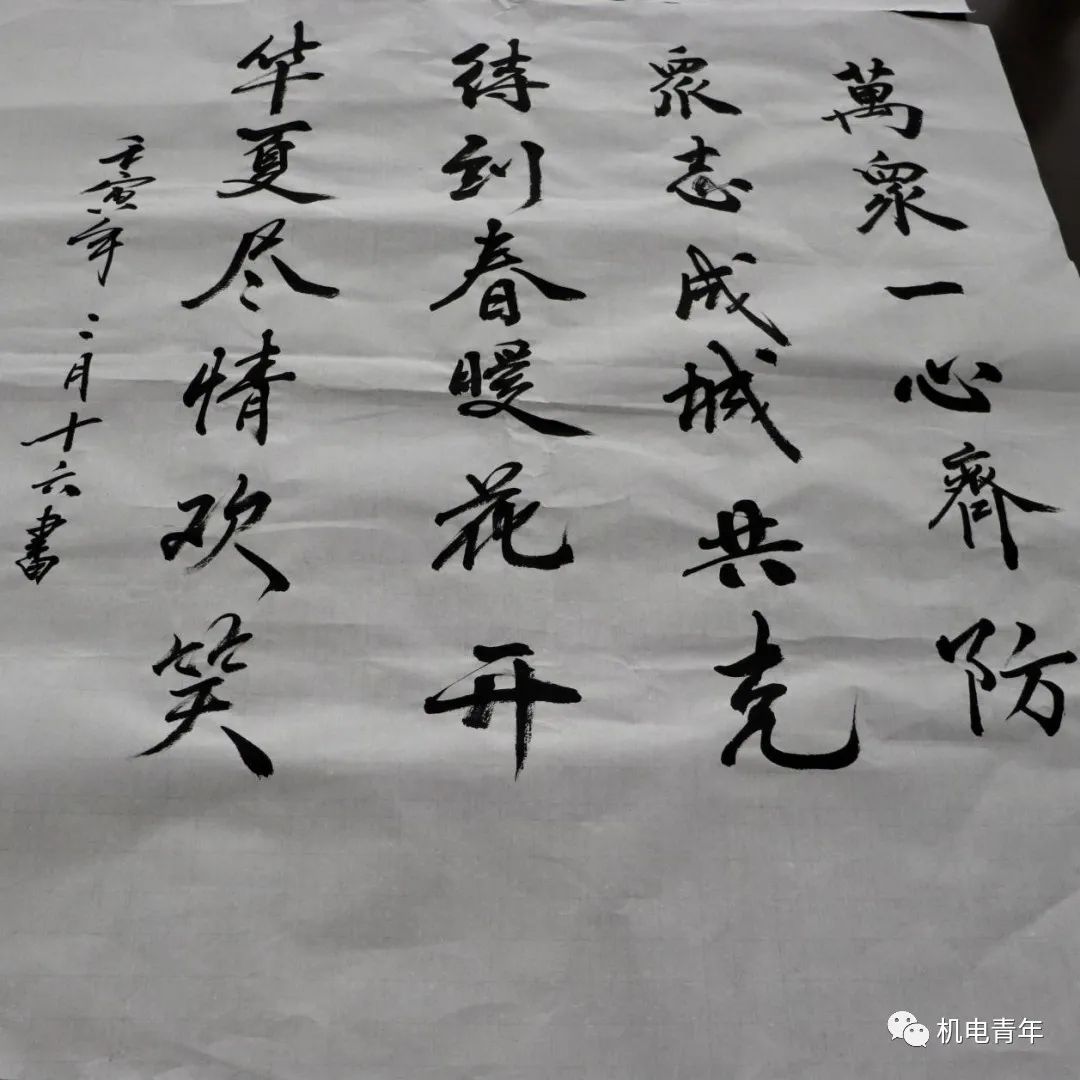 萬眾一心齊防
眾志成城共克
待到春暖花开
华夏尽情欢笑
壬寅年二月十六書
机电青年